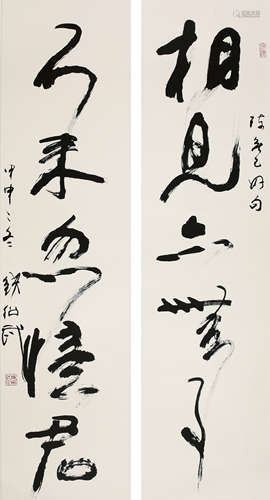 相見亦無事
好句
不来忽憶君
甲申之冬
錢紹武